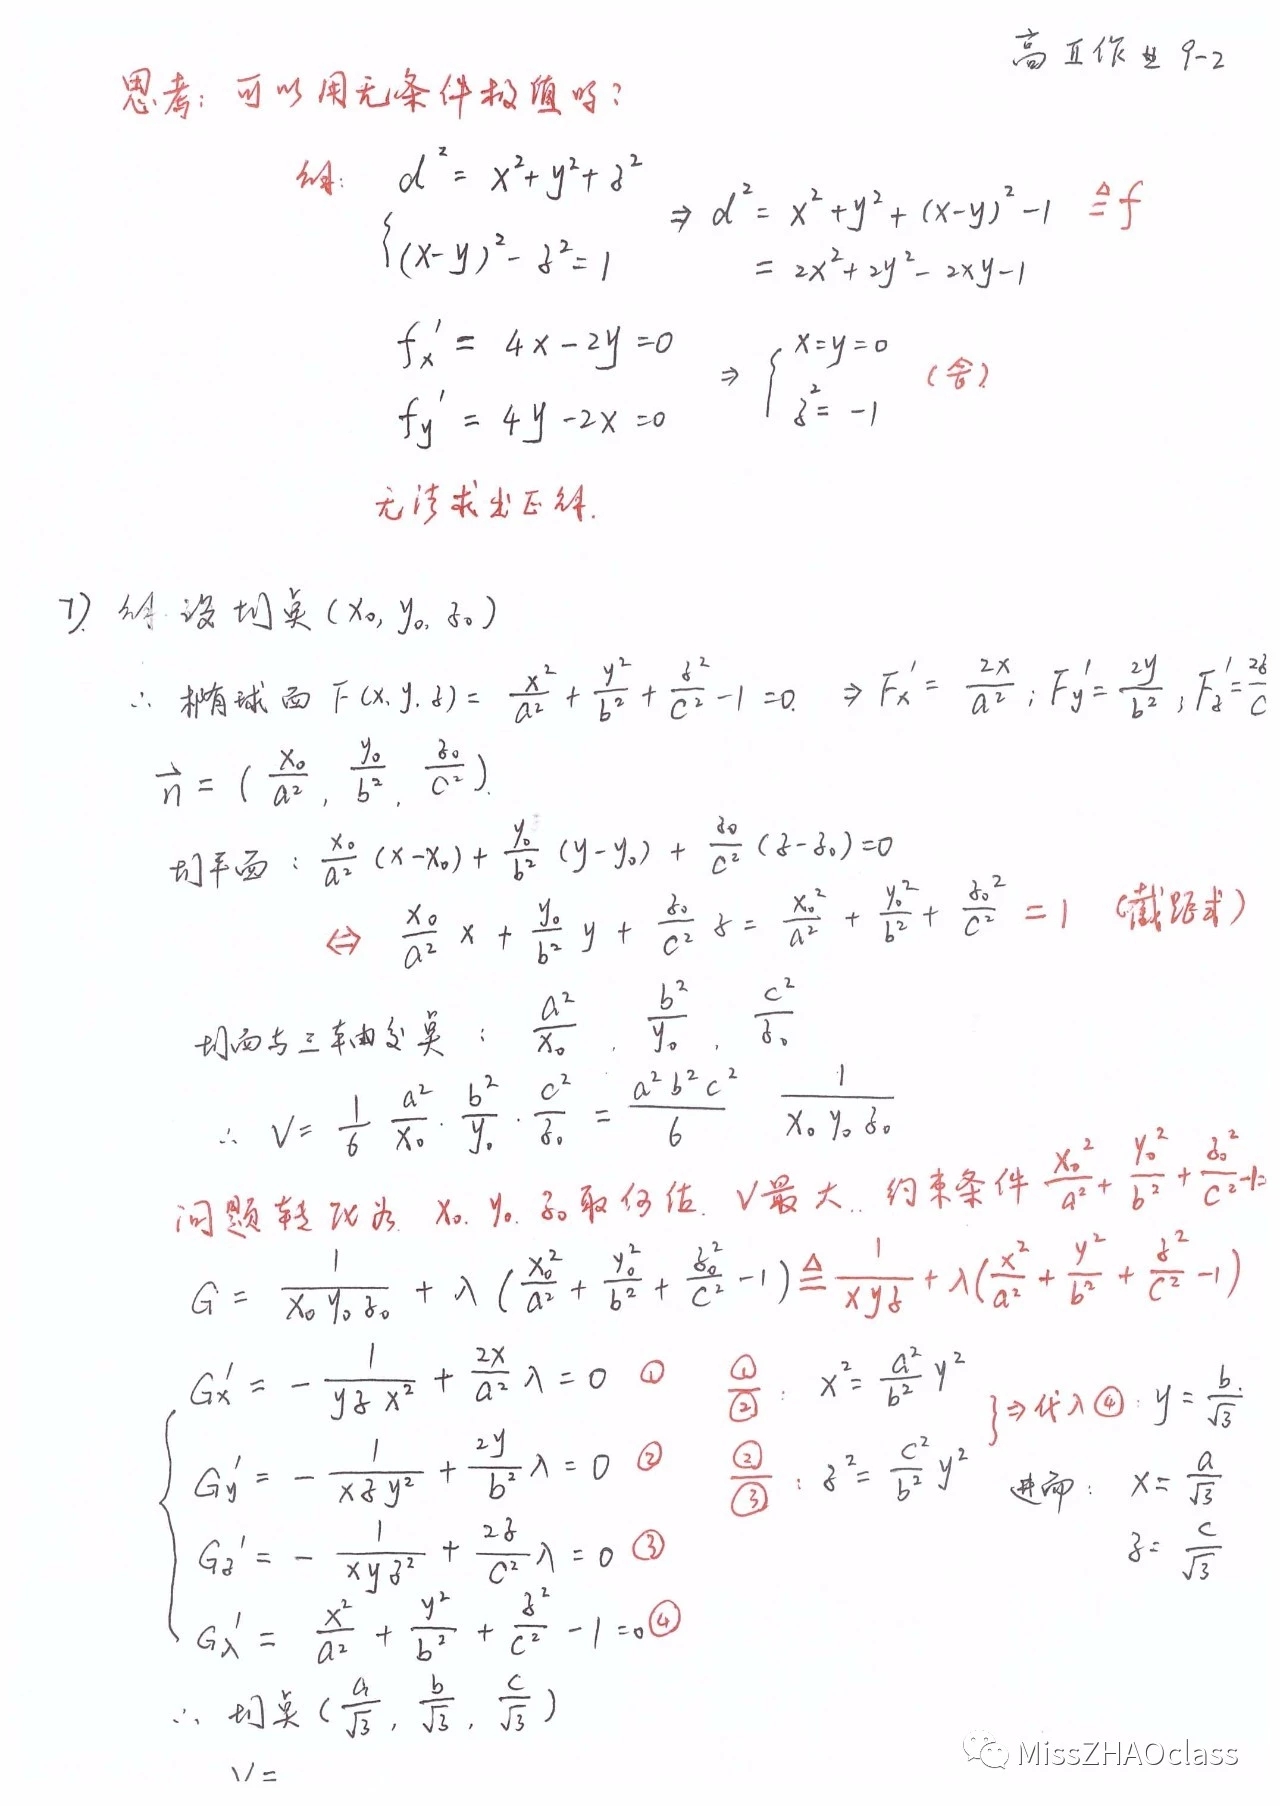 高工作业 9-2
思考: 可以用无条件极值吗?
解: d² = x²+y²+z²
(x-y)²-z²=1
⇒ d² = x²+y²+(x-y)²-1 ≜f
= 2x²+2y²-2xy-1
fx' = 4x-2y=0
fy' = 4y-2x=0
⇒ { x=y=0
z²=-1 (舍)
无法求出正解.
7) 解 设切点(x₀, y₀, z₀)
∴ 椭球面 F(x,y,z) = x²/a² + y²/b² + z²/c² -1=0. ⇒ Fx' = 2x/a² ; Fy' = 2y/b² ; Fz' = 2z/c
n⃗ = (x₀/a², y₀/b², z₀/c²).
切平面: x₀/a² (x-x₀) + y₀/b² (y-y₀) + z₀/c² (z-z₀)=0
⇔ x₀/a² x + y₀/b² y + z₀/c² z = x₀²/a² + y₀²/b² + z₀²/c² = 1 (截距式)
切面与三轴交点: a²/x₀ , b²/y₀ , c²/z₀
∴ V = 1/6 a²/x₀ · b²/y₀ · c²/z₀ = a²b²c²/6 1/(x₀y₀z₀)
问题转化为 x₀. y₀. z₀取何值. V最大.. 约束条件 x₀²/a² + y₀²/b² + z₀²/c² -1=
G = 1/(x₀y₀z₀) + λ(x₀²/a² + y₀²/b² + z₀²/c² -1) ≜ 1/(xyz) + λ(x²/a² + y²/b² + z²/c² -1)
Gx' = - 1/(yzx²) + 2x/a² λ = 0 ①
Gy' = - 1/(xzy²) + 2y/b² λ = 0 ②
Gz' = - 1/(xyz²) + 2z/c² λ = 0 ③
Gλ' = x²/a² + y²/b² + z²/c² -1=0 ④
①/②: x² = a²/b² y²
②/③: z² = c²/b² y²
} ⇒ 代入④: y = b/√3
进而: x = a/√3
z = c/√3
∴ 切点(a/√3, b/√3, c/√3)
V =
MissZHAOclass